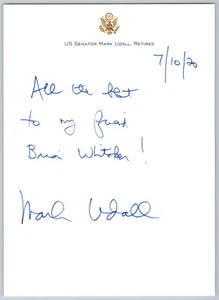 US SENATOR MARK UDALL, RETIRED
7/10/20
All the best
to my friend
Brian Whitaker!
Mark Udall